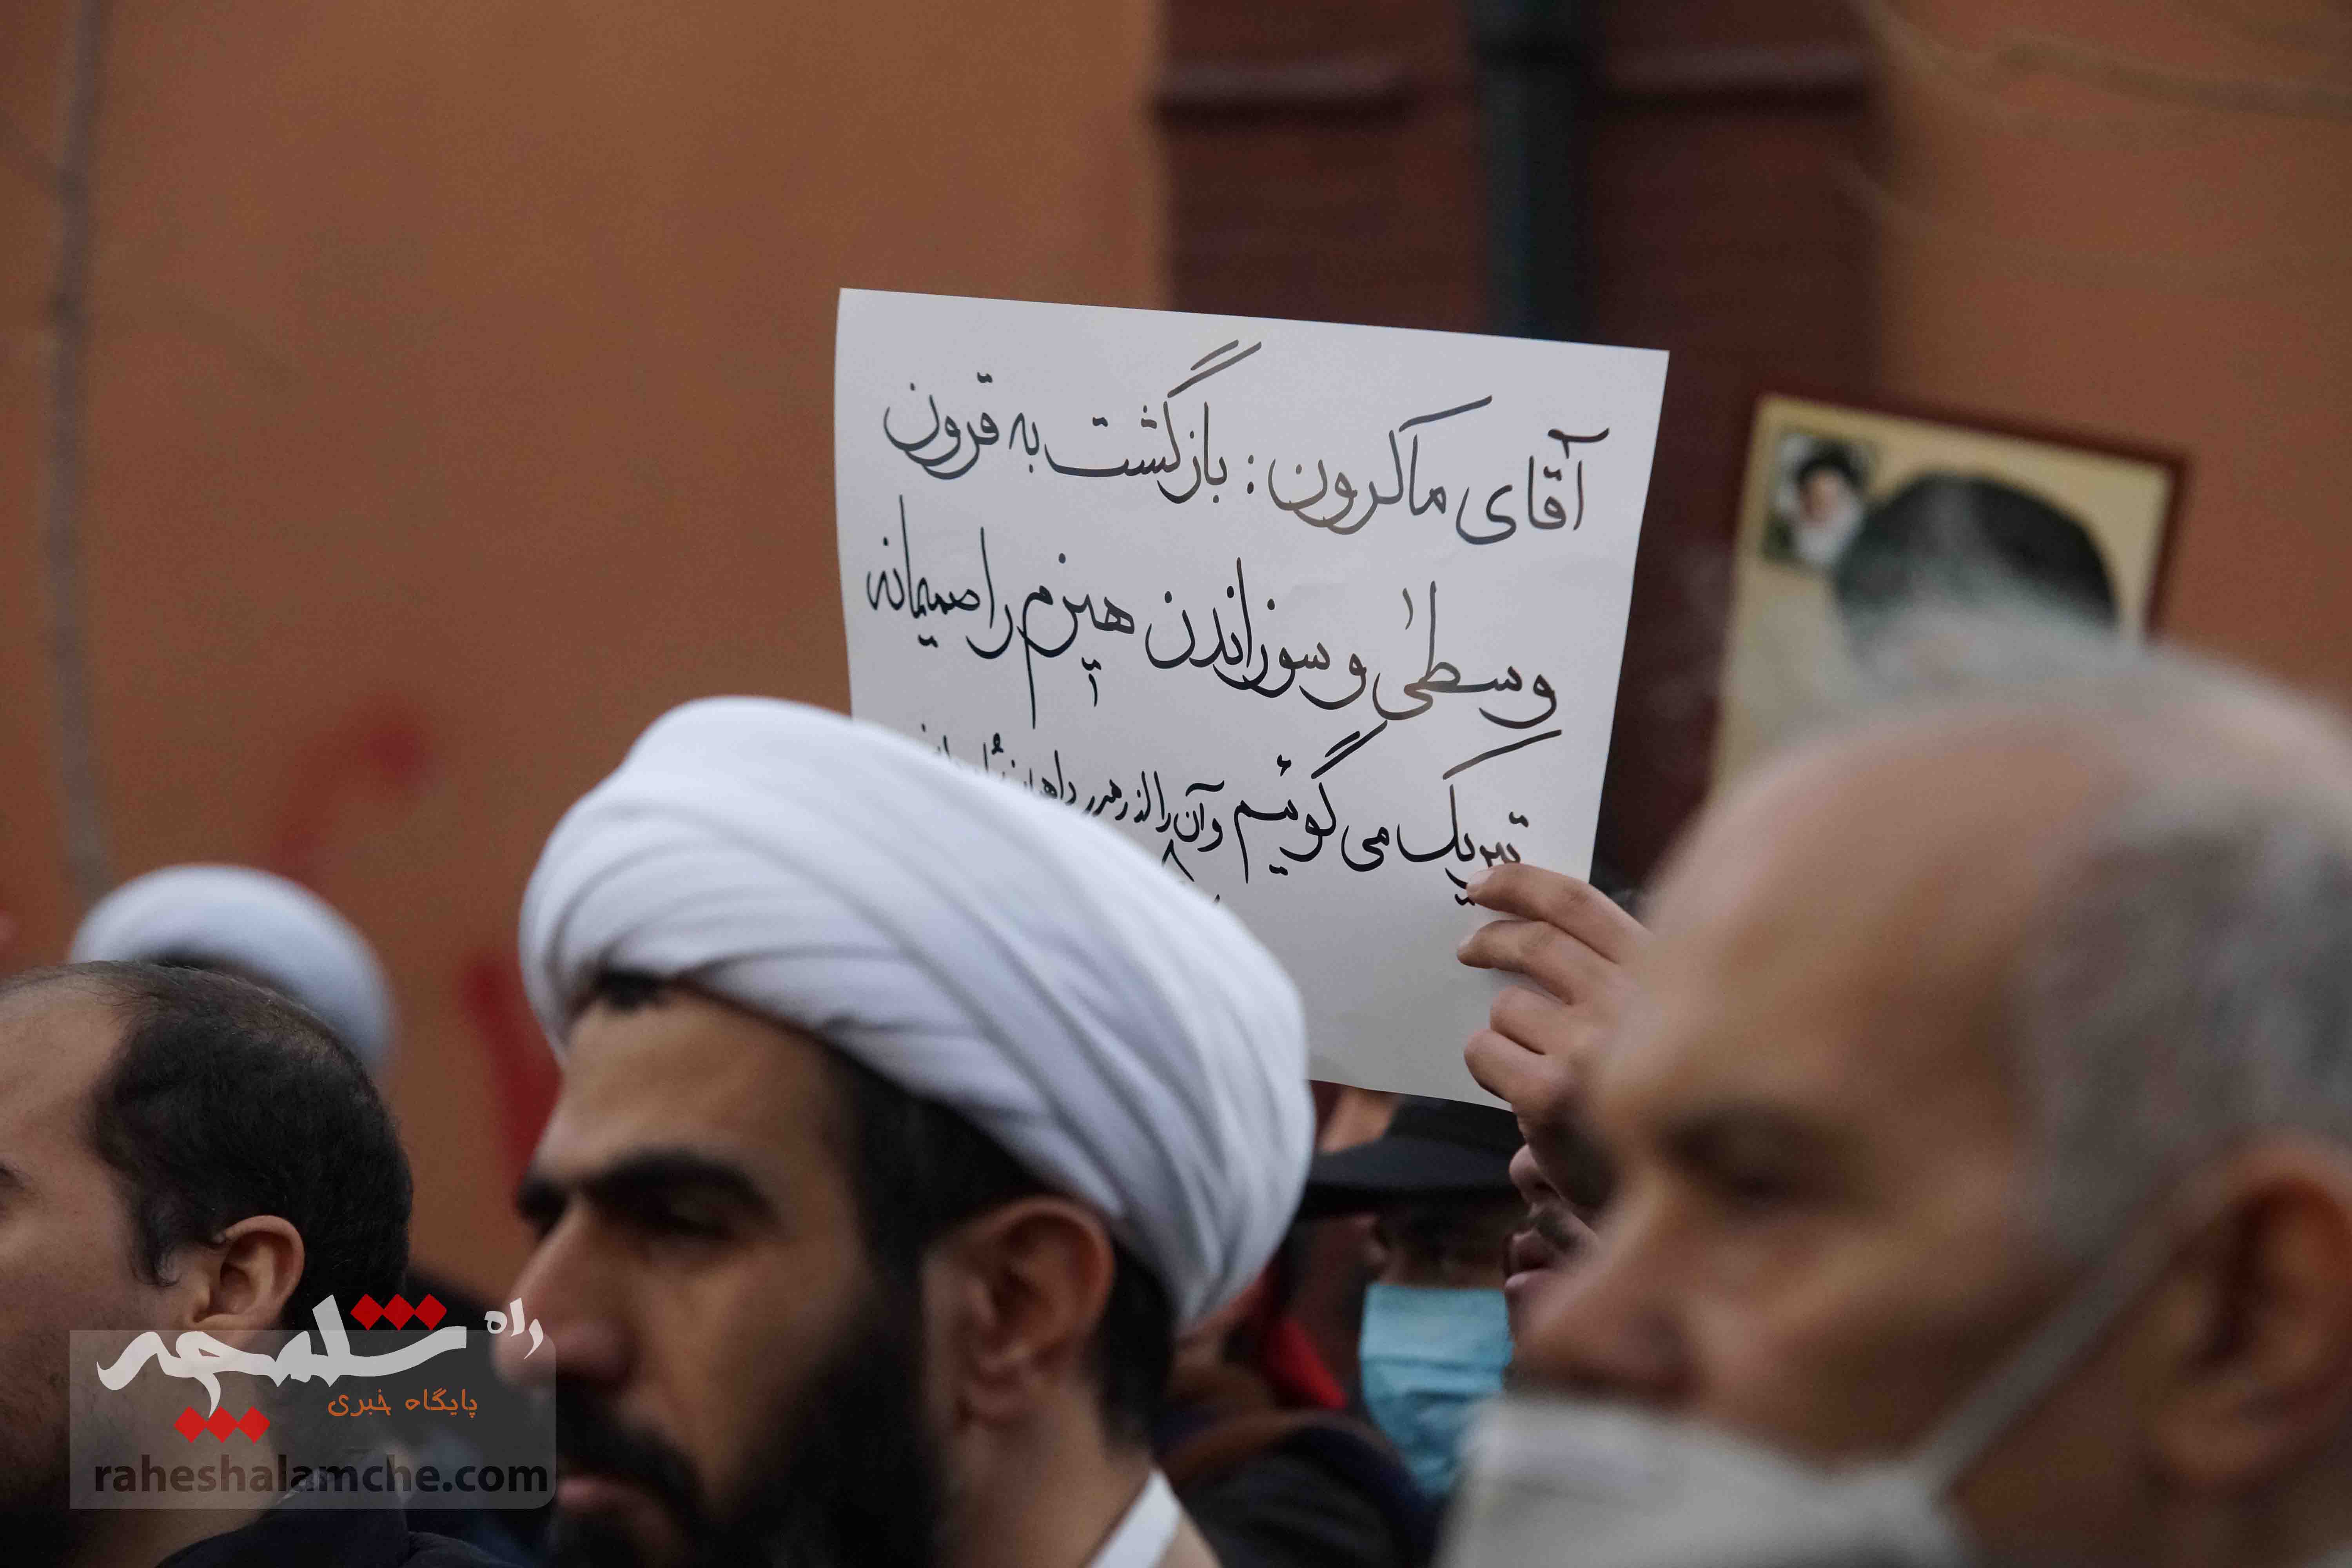 آقای ماکرون : بازگشت به قرون
وسطیٰ و سوزاندن هیزم را صمیمانه
تبریک می گوئیم و آن را
راه شلمچه
پایگاه خبری
raheshalamche.com